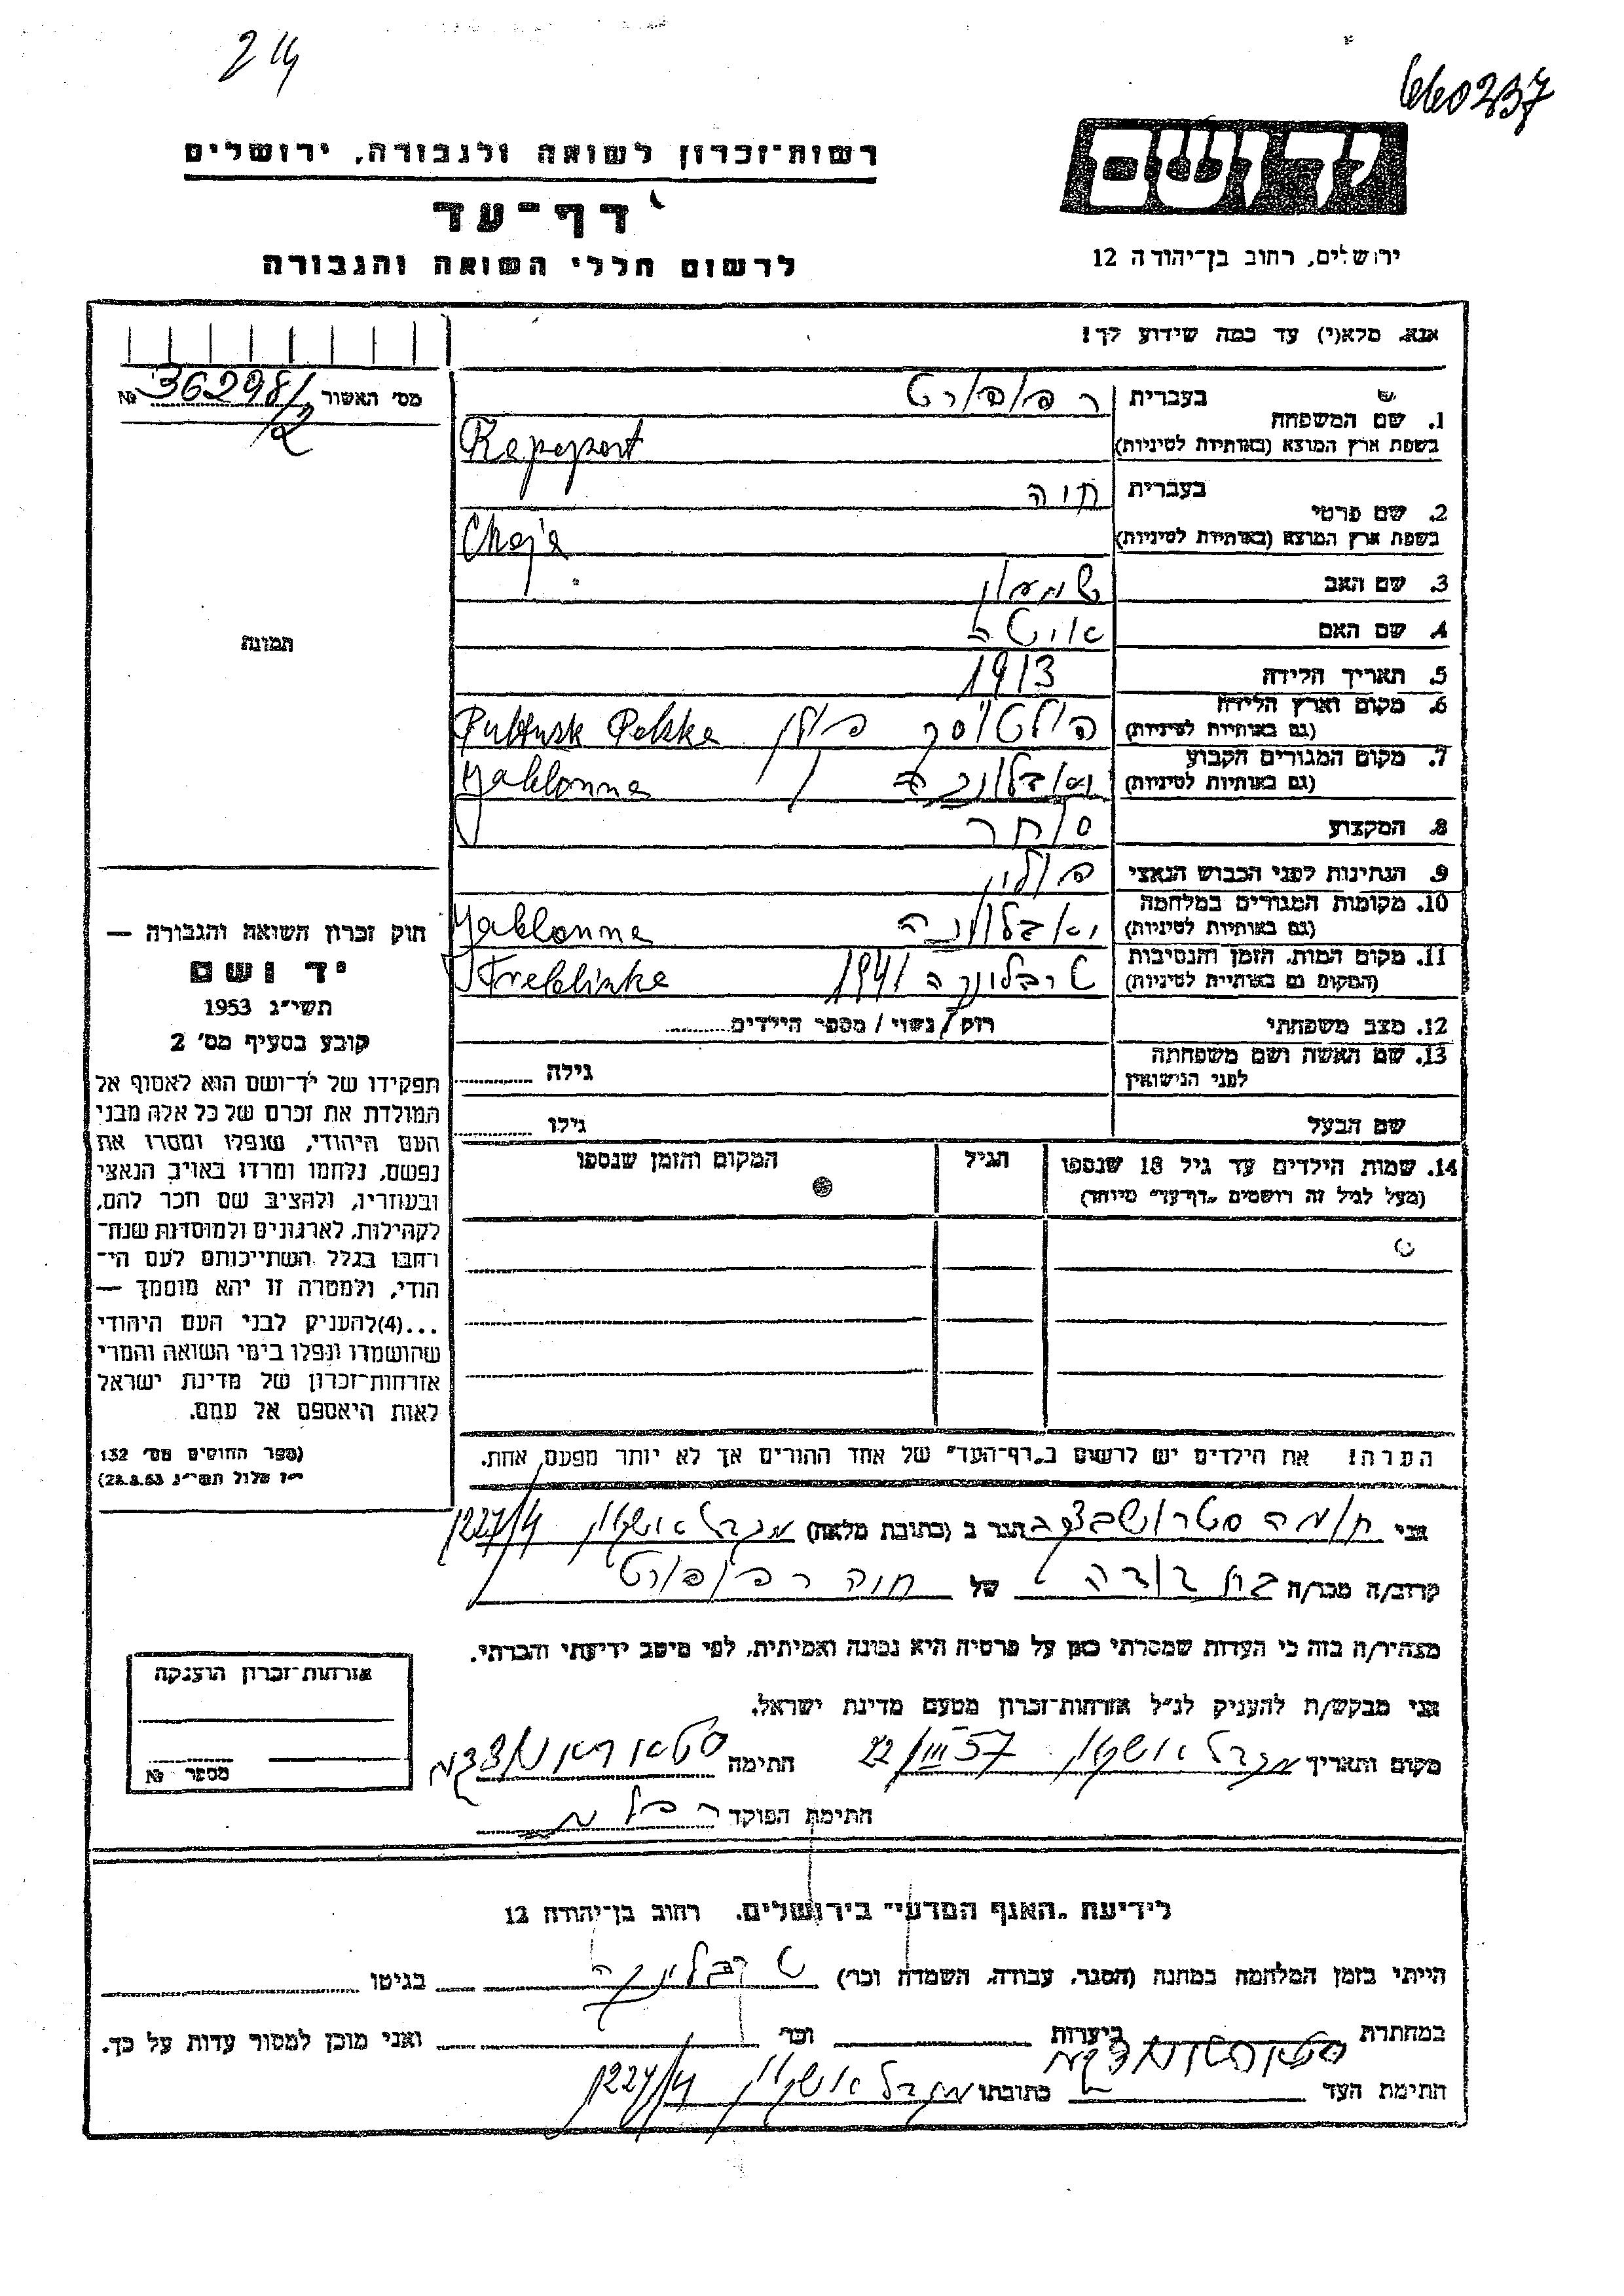 214
660237
רשות־זכרון לשואה ולגבורה, ירושלים
דף־עד
לרשום חללי השואה והגבורה
ידושם
ירושלים, רחוב בן־יהודה 12
אנא, מלא(י) עד כמה שידוע לך!
מס' האשור № 36298/
12
1. שם המשפחה
בעברית רפופורט
בשפת ארץ המוצא (באותיות לטיניות) Rapeport
2. שם פרטי
בעברית חוה
בשפת ארץ המוצא (באותיות לטיניות) Chaja
3. שם האב שמעון
4. שם האם איטה
5. תאריך הלידה 1913
6. מקום וארץ הלידה
(גם באותיות לטיניות) פולטוסק פולין Pultusk Polska
7. מקום המגורים הקבוע
(גם באותיות לטיניות) יאבלונה Yablonna
8. המקצוע סוחר
9. הנתינות לפני הכבוש הנאצי פולין
10. מקומות המגורים במלחמה
(גם באותיות לטיניות) יאבלונה Yablonna
11. מקום המות, הזמן והנסיבות
(המקום גם באותיות לטיניות) טרבלינקה 1941 Treblinka
12. מצב משפחתי רוק / נשוי / מספר הילדים
13. שם האשה ושם משפחתה
לפני הנישואין גילה
שם הבעל גילו
14. שמות הילדים עד גיל 18 שנספו הגיל המקום והזמן שנספו
(מעל לגיל זה רושמים „דף־עד" מיוחד)
הערה! את הילדים יש לרשום ב„דף־העד" של אחד ההורים אך לא יותר מפעם אחת.
תמונה
חוק זכרון השואה והגבורה —
יד ושם
תשי"ג 1953
קובע בסעיף מס' 2
תפקידו של יד־ושם הוא לאסוף אל
המולדת את זכרם של כל אלה מבני
העם היהודי, שנפלו ומסרו את
נפשם, נלחמו ומרדו באויב הנאצי
ובעוזריו, ולהציב שם וזכר להם,
לקהילות, לארגונים ולמוסדות שנח־
רבו בגלל השתייכותם לעם הי־
הודי, ולמטרה זו יהא מוסמך —
...(4)להעניק לבני העם היהודי
שהושמדו ונפלו בימי השואה והמרי
אזרחות־זכרון של מדינת ישראל
לאות היאספם אל עמם.
(ספר החוקים מס' 132
י"ז אלול תשי"ג 28.8.53)
אני הגר ב (כתובת מלאה) מגדל אשקלון 1227/4
קרוב/ה מכר/ה בת דודה של חוה רפופורט
מצהיר/ה בזה כי העדות שמסרתי כאן על פרטיה היא נכונה ואמיתית, לפי מיטב ידיעתי והכרתי.
אני מבקש/ת להעניק לנ"ל אזרחות־זכרון מטעם מדינת ישראל.
מקום ותאריך מגדל אשקלון 22/III 57 חתימה
חתימת הפוקד
אזרחות־זכרון הוענקה
מספר №
לידיעת „האגף המדעי" בירושלים, רחוב בן־יהודה 12
הייתי בזמן המלחמה במחנה (הסגר, עבודה, השמדה וכו') טרבלינקה בגיטו
במחתרת ביערות וכו' ואני מוכן למסור עדות על כך.
חתימת העד כתובתו מגדל אשקלון 1227/4